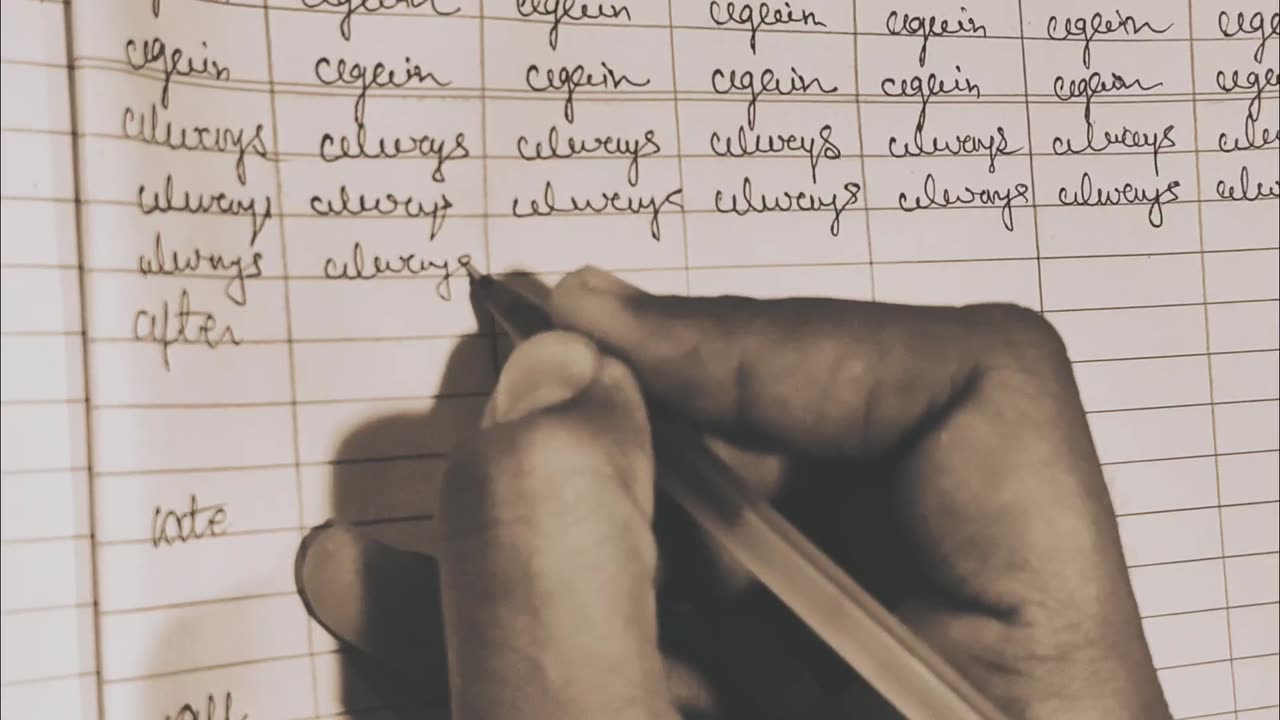 again again again again again
again again again again again again
always always always always always always
always always always always always always
always always
after
ate
all